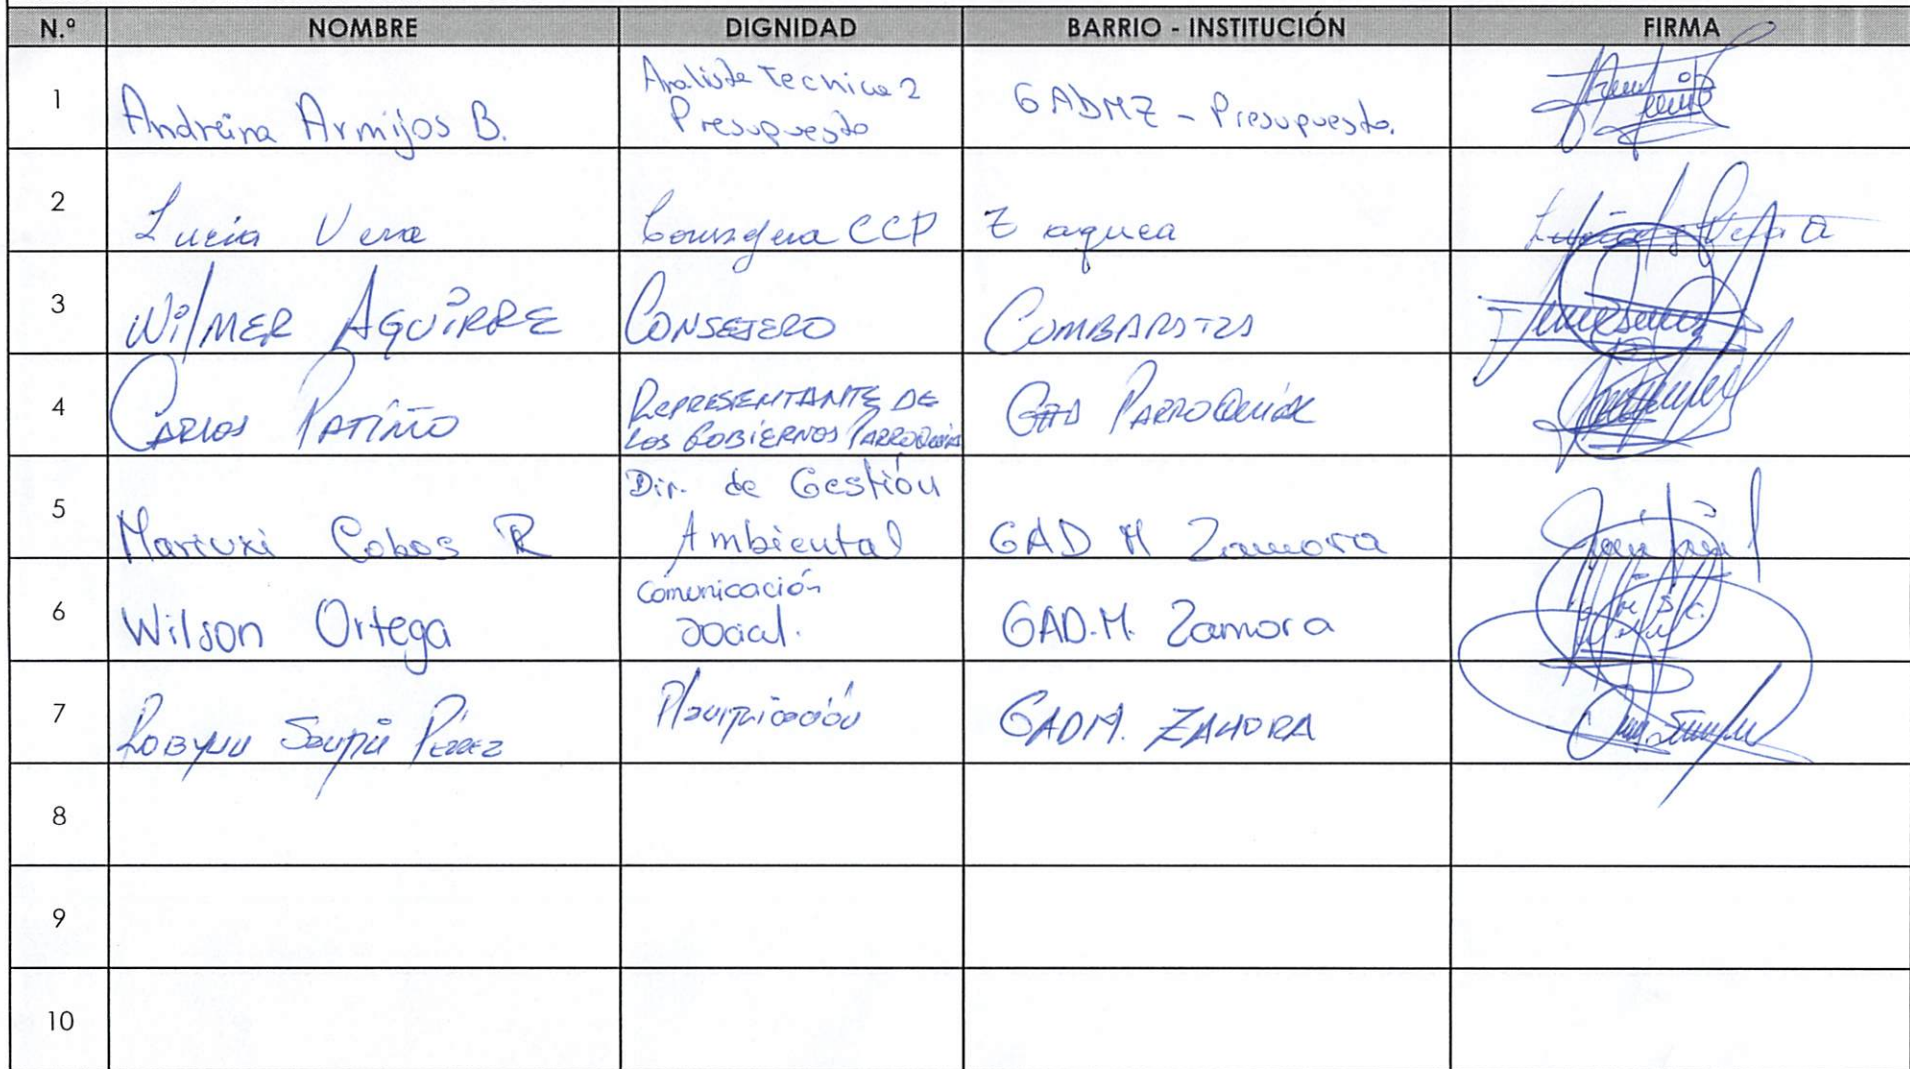 N.º NOMBRE DIGNIDAD BARRIO - INSTITUCIÓN FIRMA
1 Andreina Armijos B. Analista Tecnica 2 Presupuesto GADMZ - Presupuesto.
2 Lucia Vera Consejera CCP Zaquea
3 WILMER AGUIRRE CONSEJERO CUMBARATZA
4 CARLOS PATIÑO REPRESENTANTE DE LOS GOBIERNOS PARROQUIA GAD PARROQUIAL
5 Maricuxi Cobos R Dir. de Gestión Ambiental GAD M Zamora
6 Wilson Ortega Comunicación social. GAD.M. Zamora
7 PÉREZ Planificación GADM. ZAMORA
8
9
10